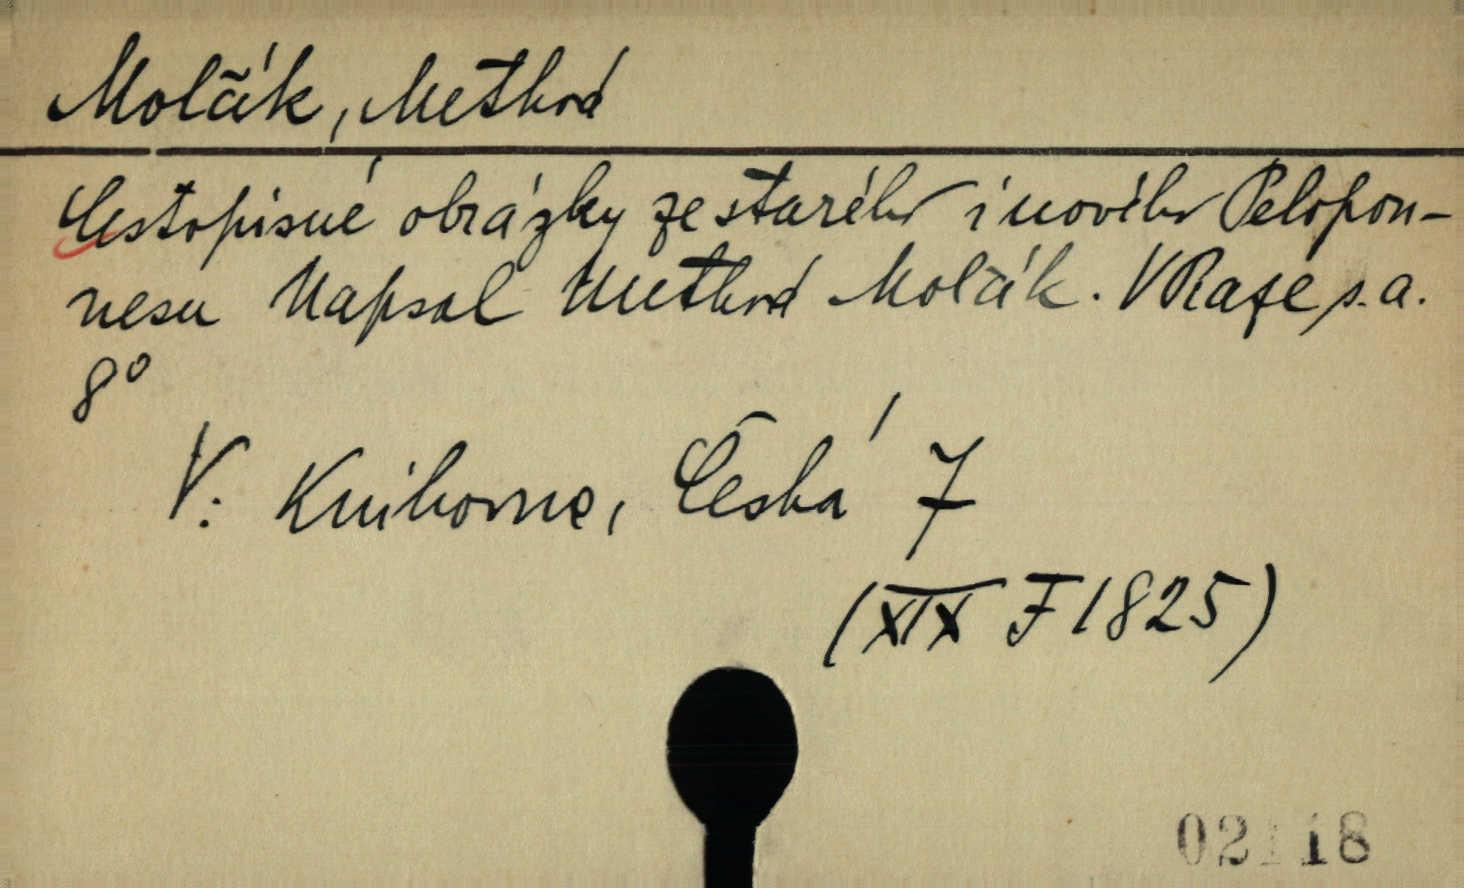 Molčák, Method
Cestopisné obrázky ze starého i nového Pelopon-
nesu Napsal Method Molčák. V Raže s. a.
8°
V: Knihovna, Česká 7
(XIX F 1825)